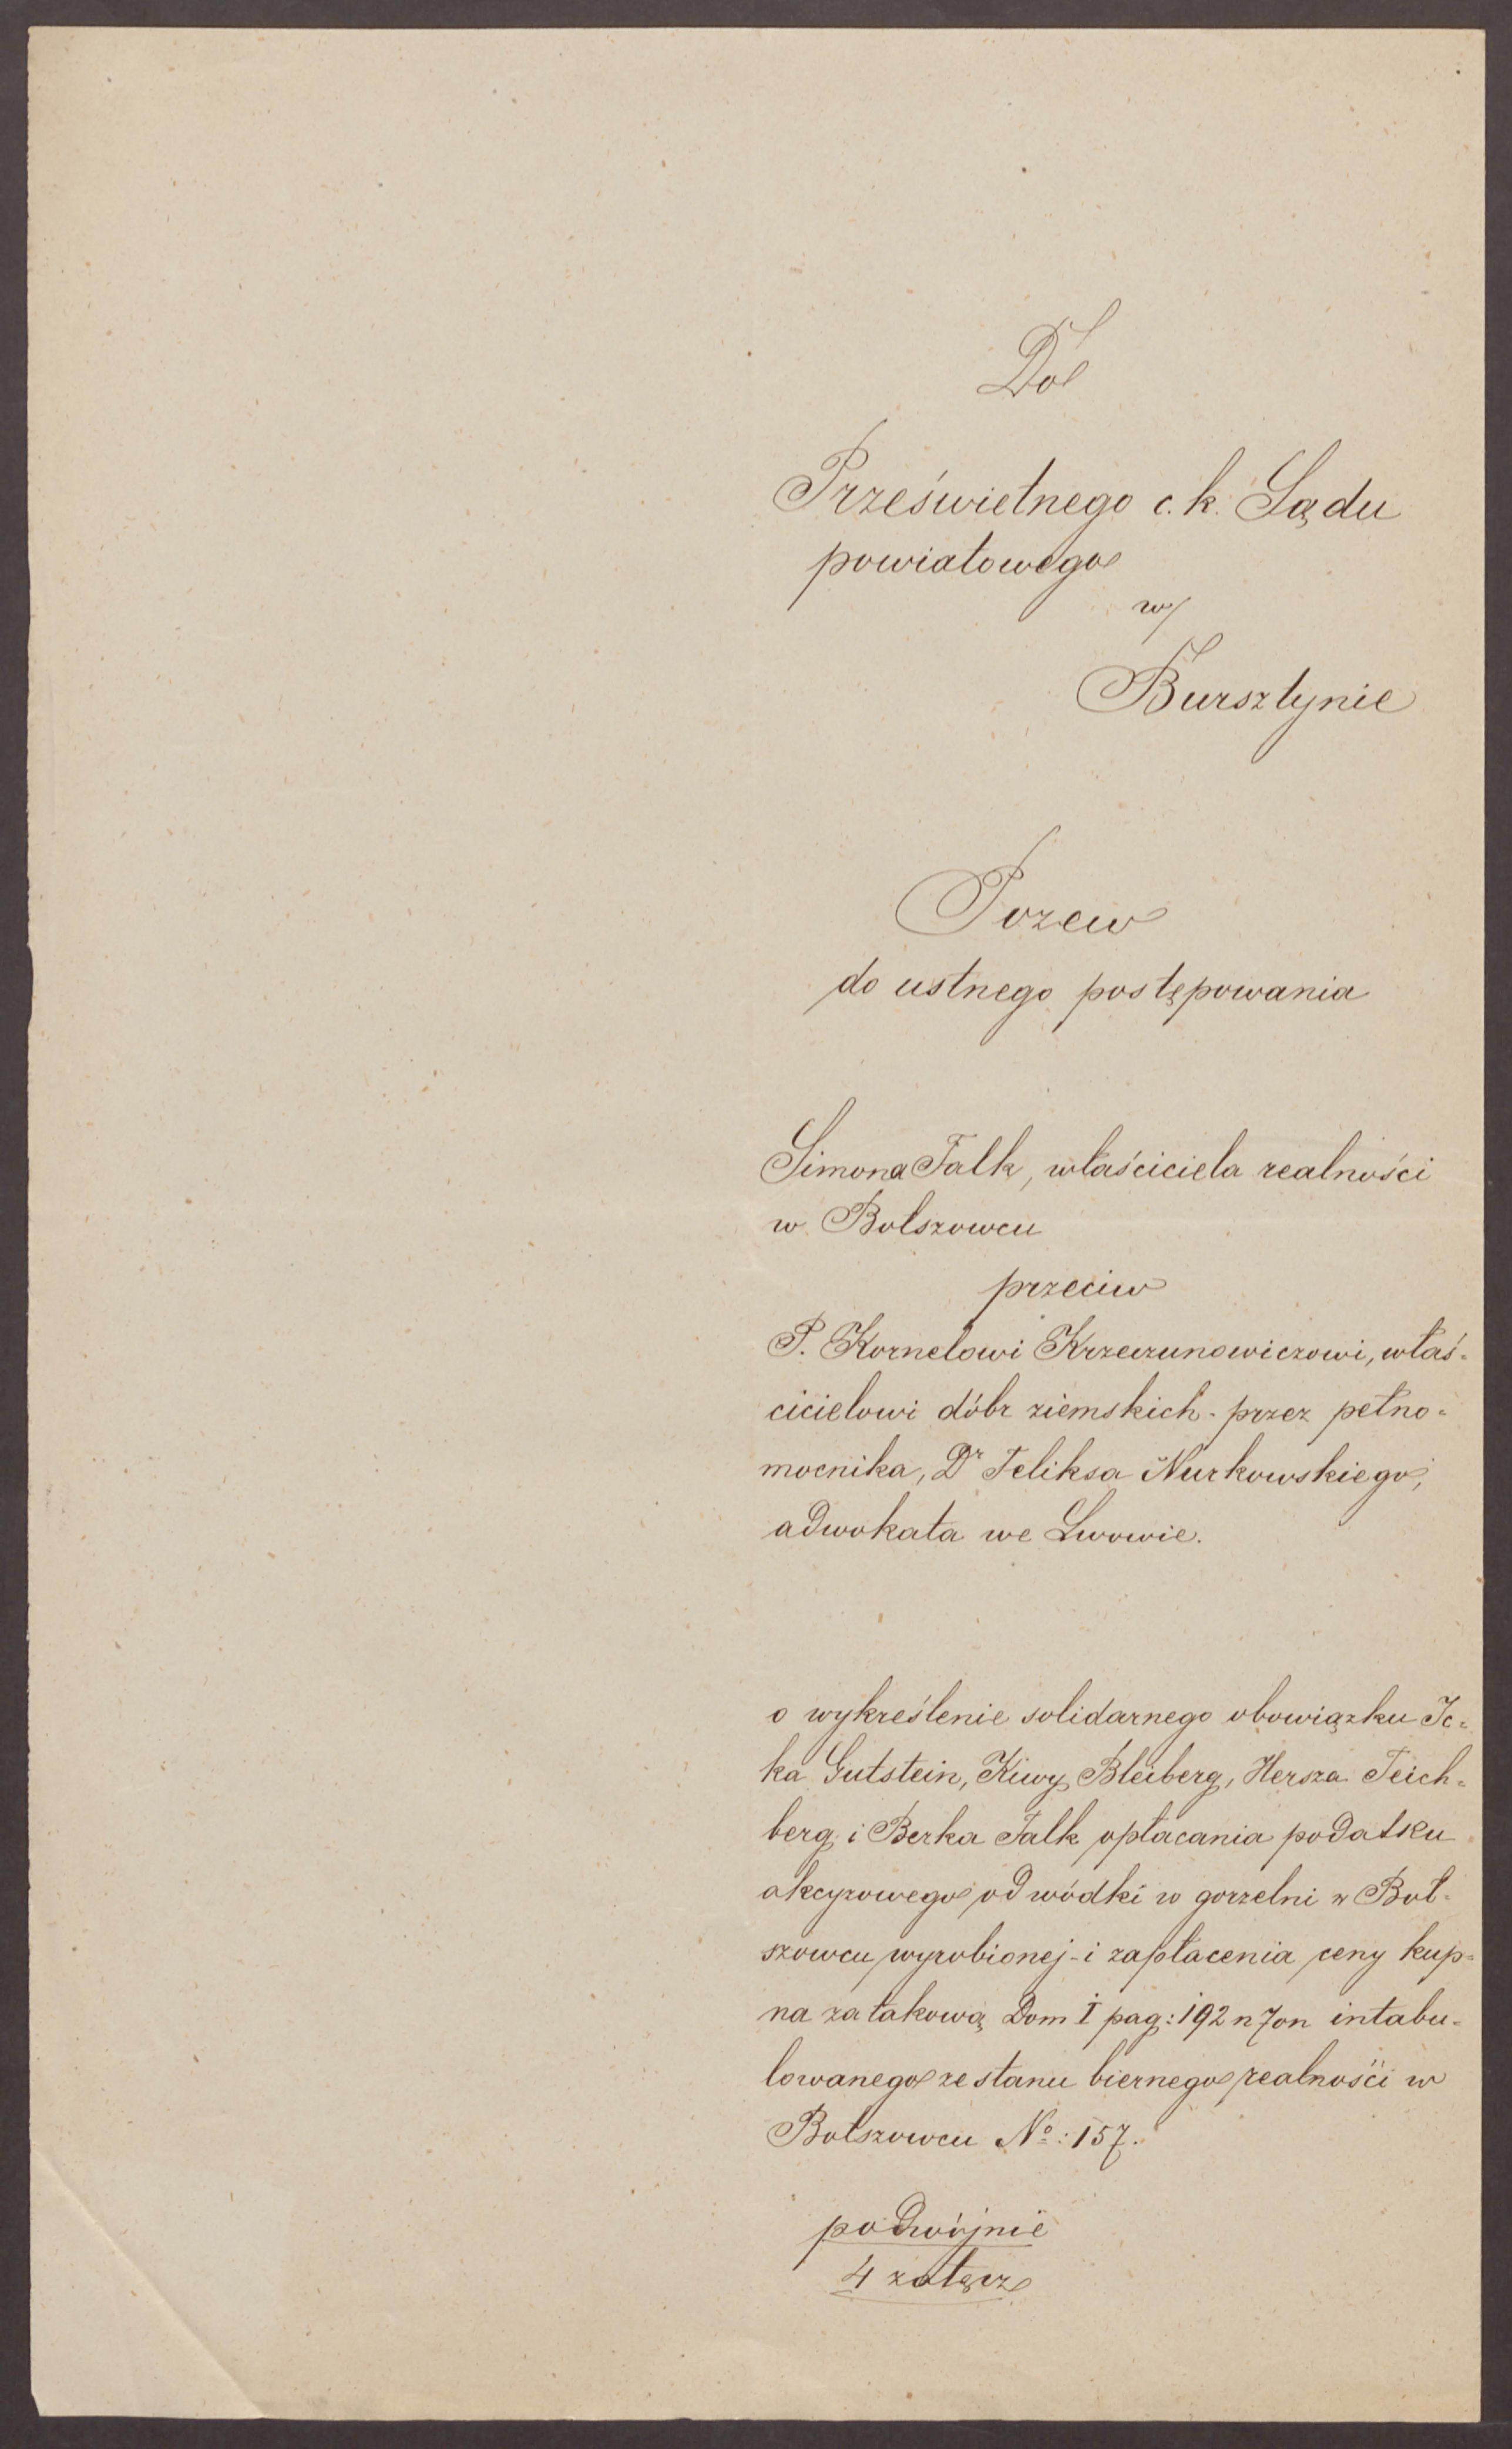 Do
Prześwietnego c. k. Sądu
powiatowego
w
Bursztynie
Pozew
do ustnego postępowania
Simona Falk, właściciela realności
w Bołszowcu
przeciw
P. Kornelowi Krzeczunowiczowi, właś-
cicielowi dóbr ziemskich - przez pełno-
mocnika, Dr Feliksa Nurkowskiego,
adwokata we Lwowie.
o wykreślenie solidarnego obowiązku Ic-
ka Gutstein, Kiwy Bleiberg, Hersza Teich-
berg i Berka Falk opłacania podatku
akcyzowego od wódki w gorzelni w Boł-
szowcu wyrobionej - i zapłacenia ceny kup-
na za takową Dom I pag: 192 n 7 on intabu-
lowanego ze stanu biernego realności w
Bołszowcu No: 157.
podwójnie
4 załącz